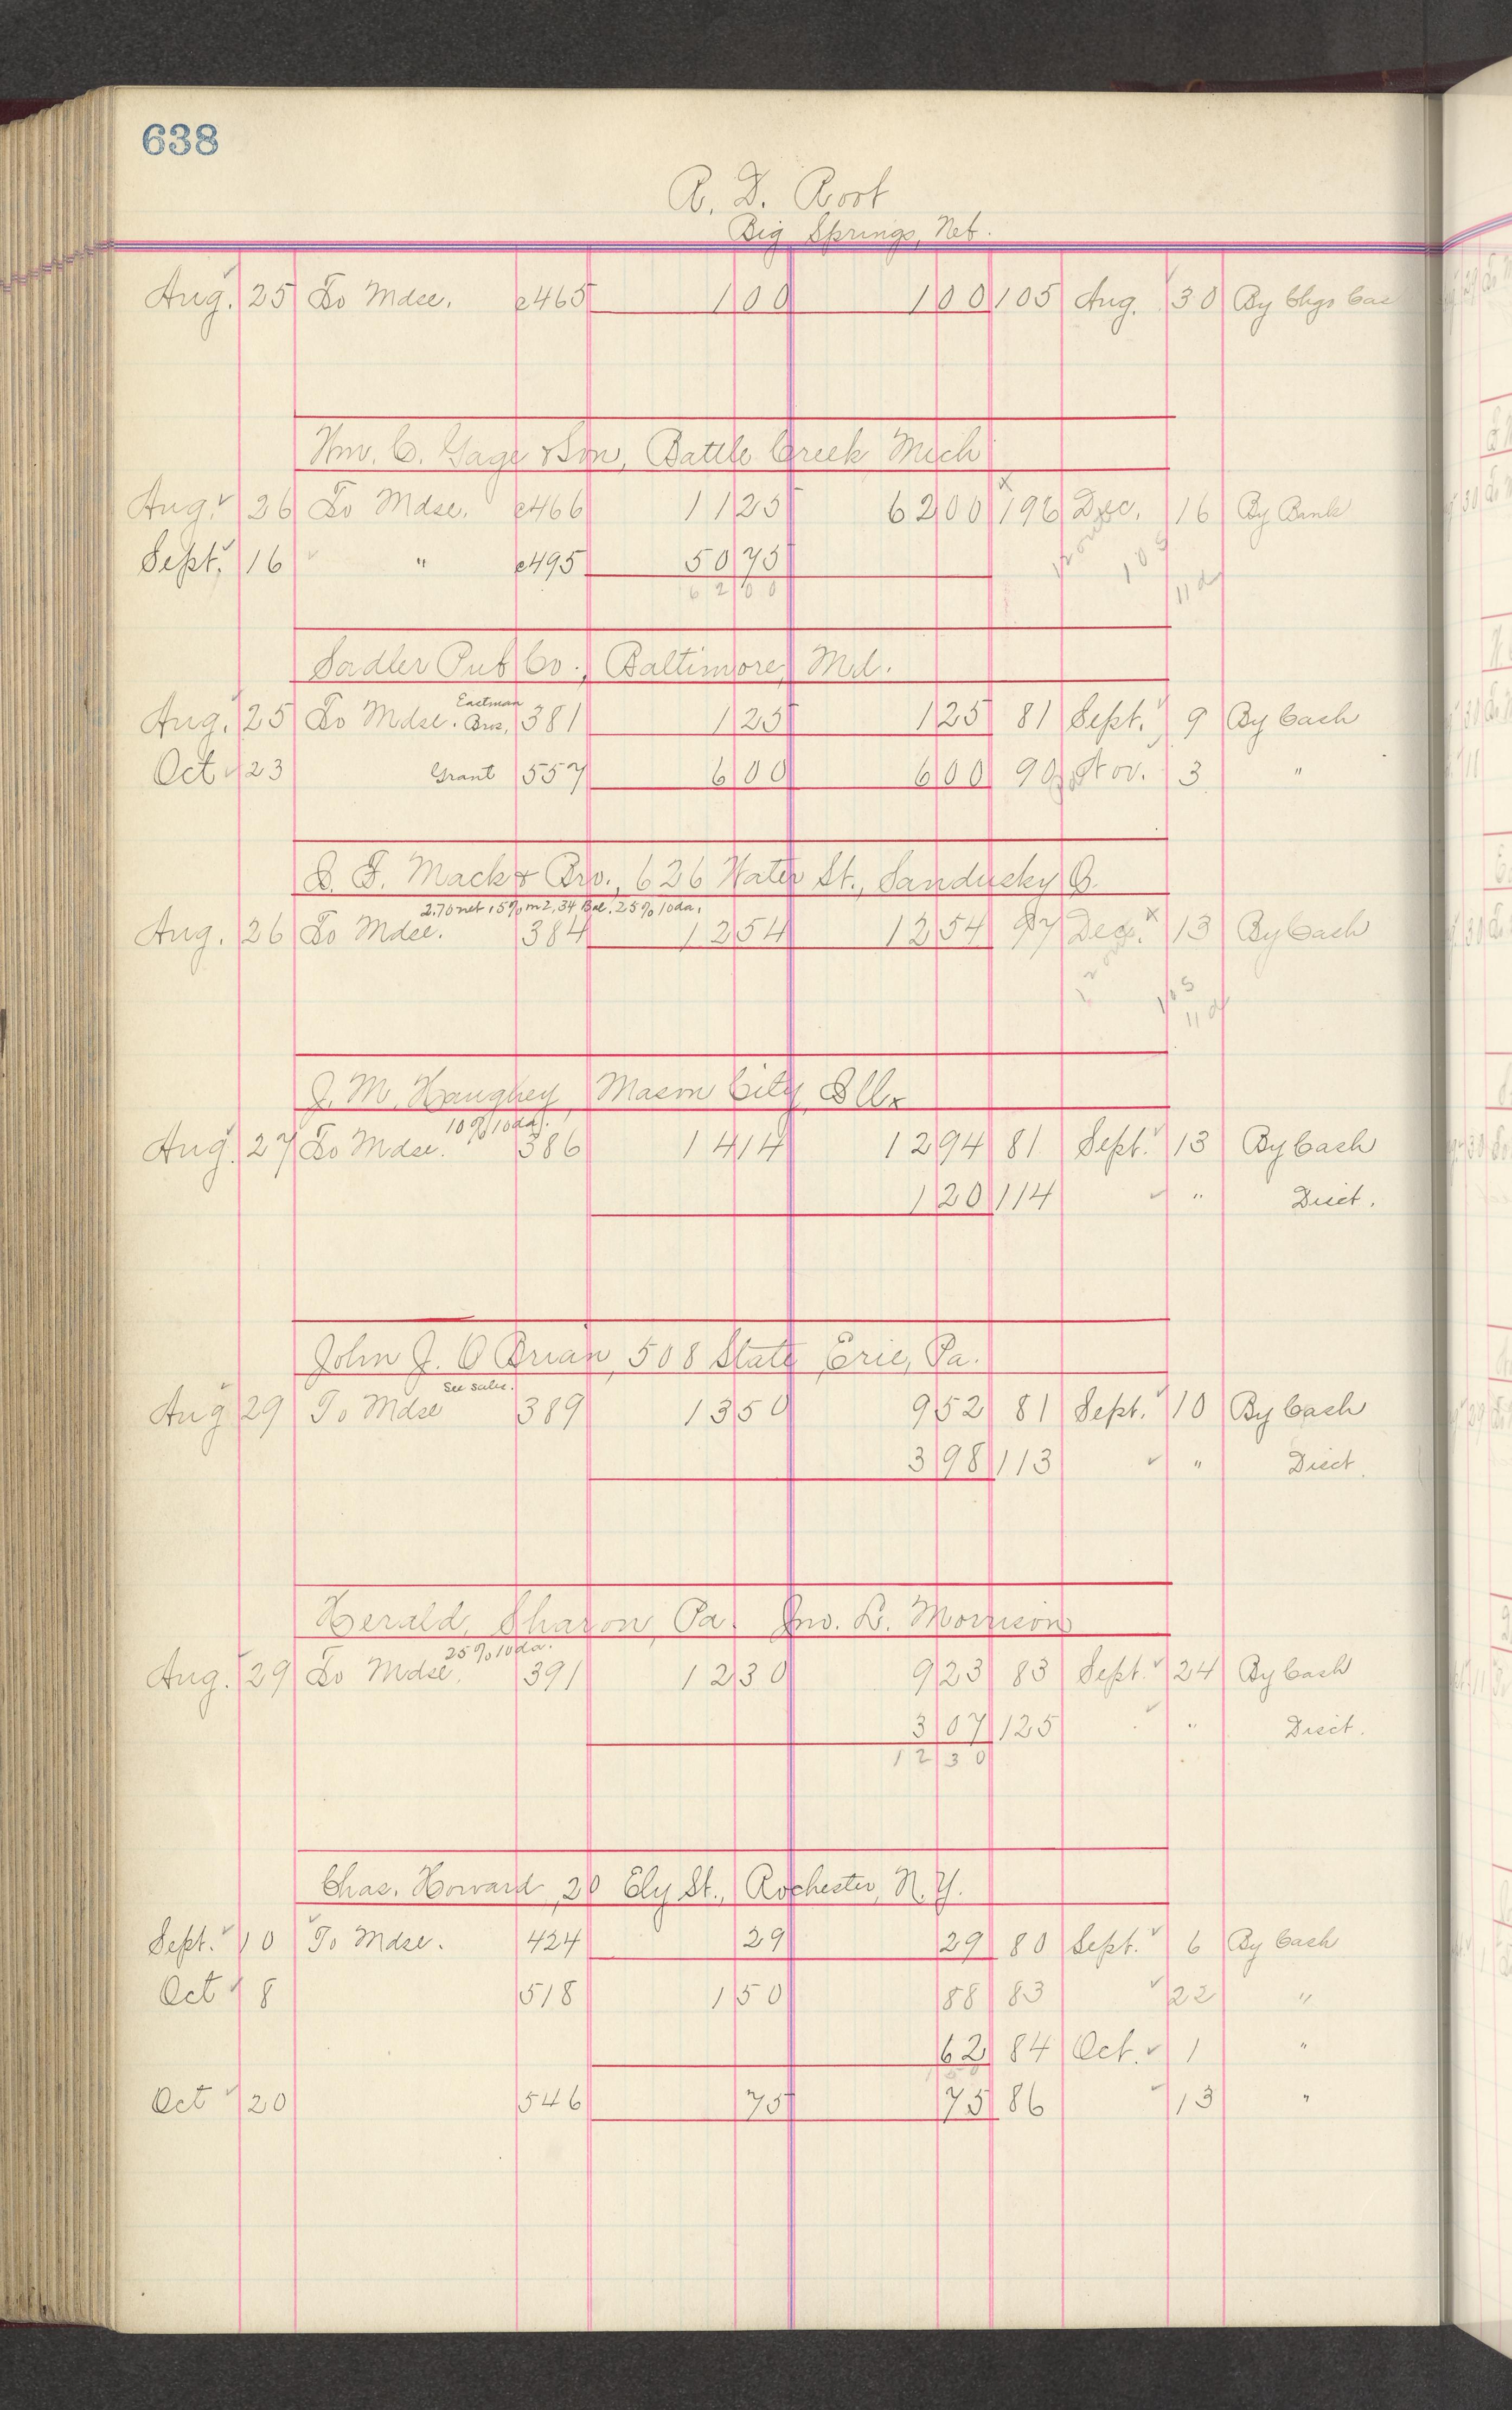 638
R. D. Root
Big Springs, Neb.
Aug. 25 To Mdse. c465 1 00 1 00 105 Aug. 30 By Chgs
Wm. C. Gage & Son, Battle Creek Mich
Aug. 26 To Mdse. c466 11 25 62 00 196 Dec. 16 By Bank
Sept. 16 " c495 50 75
62 00
11
Sadler Pub Co., Baltimore, Md.
Eastman
Aug. 25 To Mdse. Bros, 381 1 25 1 25 81 Sept. 9 By Cash
Oct 23 Grant 557 6 00 6 00 90 Nov. 3 "
Mack & Bro., 626 Water St., Sandusky O.
2.70 net 15% m 2,34 Bal. 25% 10da.
Aug. 26 To Mdse. 384 12 54 12 54 97 Dec. x 13 By Cash
11
J. M. Haughey, Mason City, Ills
10% 10da.
Aug. 27 To Mdse. 386 14 14 12 94 81 Sept. 13 By Cash
1 20 114 " Disct.
John J. O Brian, 508 State, Erie, Pa.
See sales.
Aug 29 To Mdse 389 13 50 9 52 81 Sept. 10 By Cash
3 98 113 " Disct.
Herald, Sharon, Pa. Jno. L. Morrison
25% 10da.
Aug. 29 To Mdse. 391 12 30 9 23 83 Sept. 24 By Cash
3 07 125 " Disct.
12 30
Chas. Howard, 20 Ely St., Rochester, N.Y.
Sept. 10 To Mdse. 424 29 29 80 Sept. 6 By Cash
Oct 8 518 1 50 88 83 22 "
62 84 Oct. 1 "
Oct 20 546 75 75 86 13 "